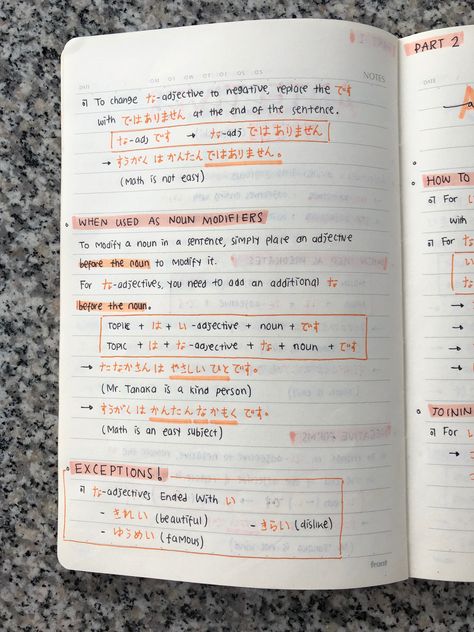 DATE
NOTES
To change な-adjective to negative, replace the です
with ではありません at the end of the sentence.
な-adj です → な-adj ではありません
→ すうがく は かんたん ではありません。
(Math is not easy)
WHEN USED AS NOUN MODIFIERS
To modify a noun in a sentence, simply place an adjective
before the noun to modify it.
For な-adjectives, you need to add an additional な
before the noun.
TOPIC + は + い-adjective + noun + です
TOPIC + は + な-adjective + な + noun + です
→ たなかさんは やさしい ひと です。
(Mr. Tanaka is a kind person)
→ すうがく は かんたん な かもく です。
(Math is an easy subject)
EXCEPTIONS!
な-adjectives Ended With い
- きれい (beautiful) - きらい (dislike)
- ゆうめい (famous)
PART 2
DATE
HOW TO
For
with
For
JOININ
For